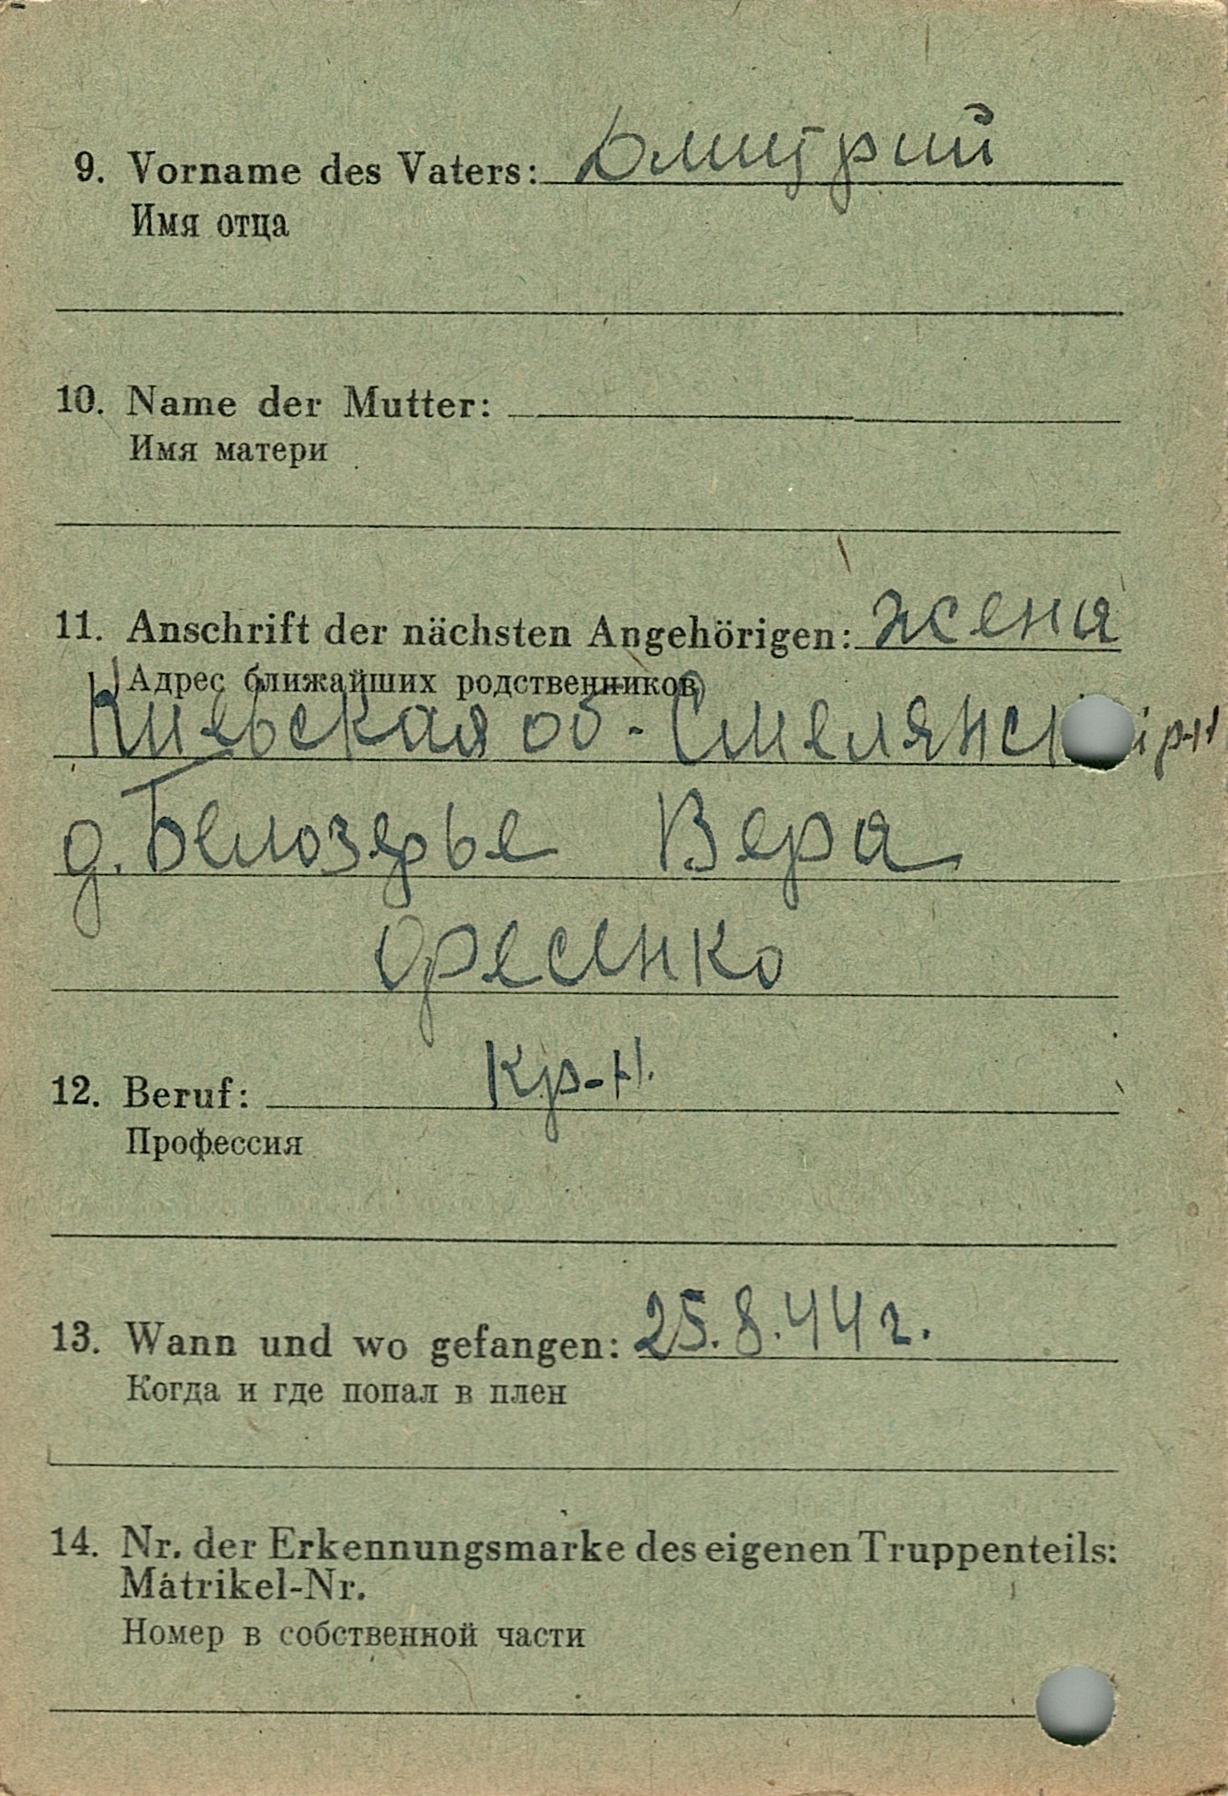 9. Vorname des Vaters: Дмитрий
Имя отца
10. Name der Mutter:
Имя матери
11. Anschrift der nächsten Angehörigen: жена
Адрес ближайших родственников
Киевская об-Смелянск р-н
д. Белозерье Вера
Оресенко
12. Beruf: Кр-н.
Профессия
13. Wann und wo gefangen: 25.8.44 г.
Когда и где попал в плен
14. Nr. der Erkennungsmarke des eigenen Truppenteils:
Matrikel-Nr.
Номер в собственной части